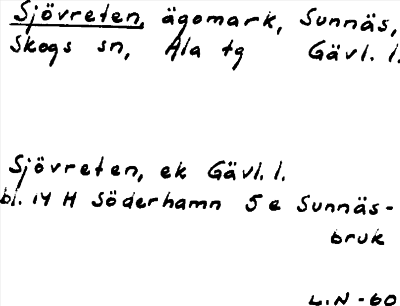 Sjövreten, ägomark, Sunnäs,
Skogs sn, Ala tg Gävl. l.
Sjövreten, ek Gävl. l.
bl. 14 H Söderhamn 5 e Sunnäs-
bruk
L.N -60